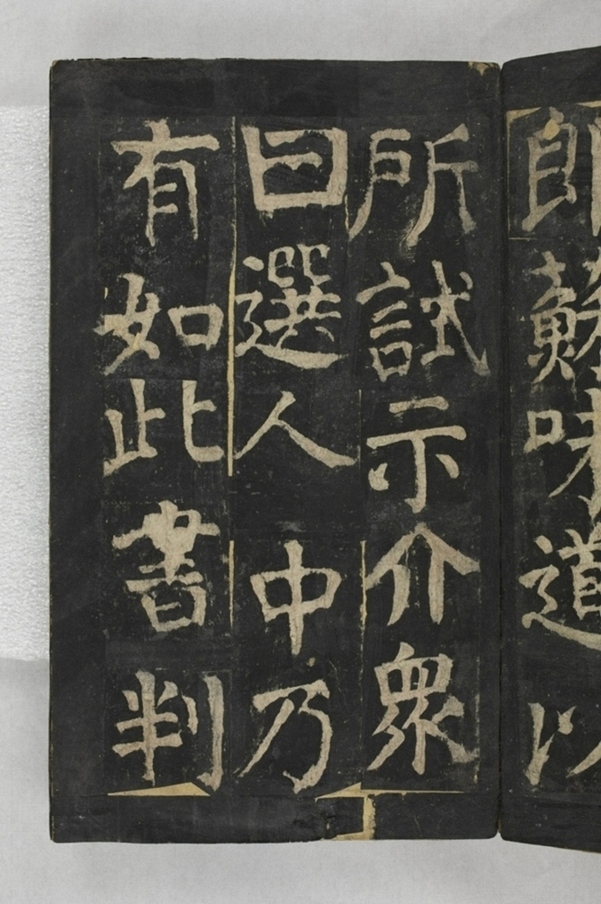 郎蘇味道以
所試示介眾
曰選人中乃
有如此書判